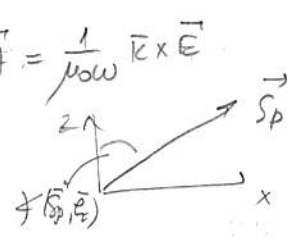 = 1/μ₀ω k̄ × E⃗
z
S⃗p
∢(S̄p, ēz)
x